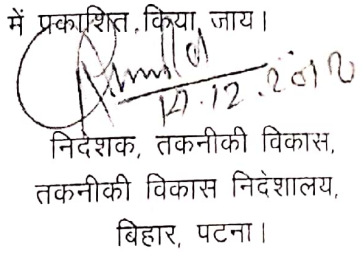 में प्रकाशित किया जाय।
14.12.2012
निदेशक, तकनीकी विकास,
तकनीकी विकास निदेशालय,
बिहार, पटना।